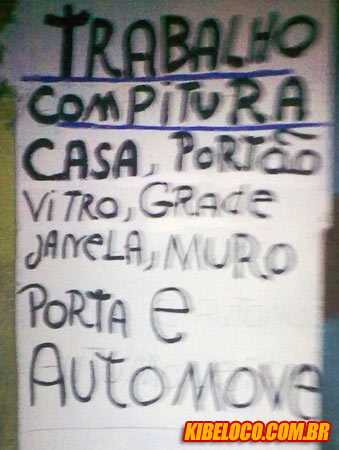 TRABALHO
COMPITURA
CASA, PORTÃO
ViTRO, GRAde
JANeLA, MURO
PORTA e
AUTOMOVE
KIBELOCO.COM.BR